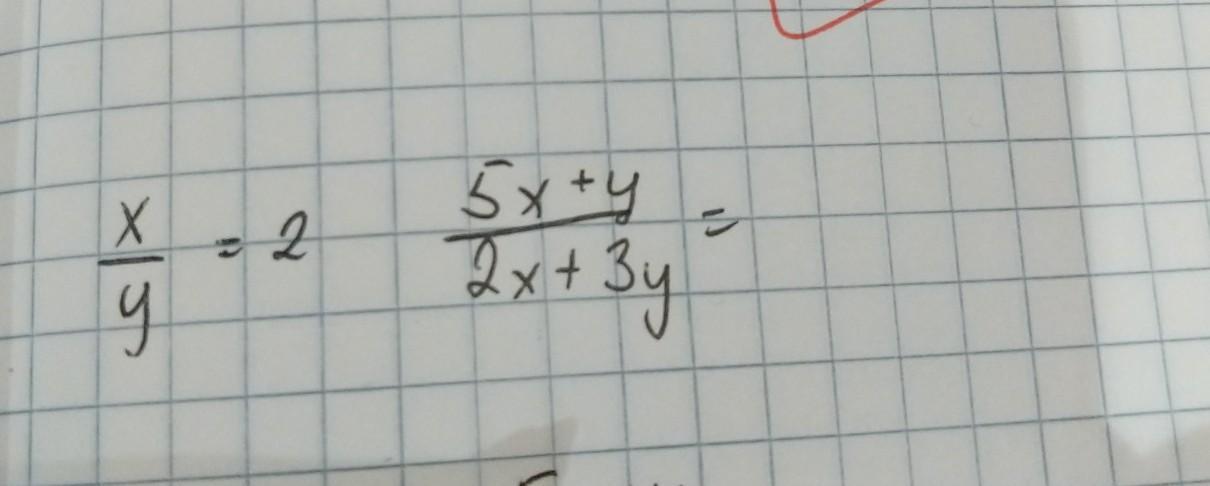 x/y = 2    (5x+y)/(2x+3y) =